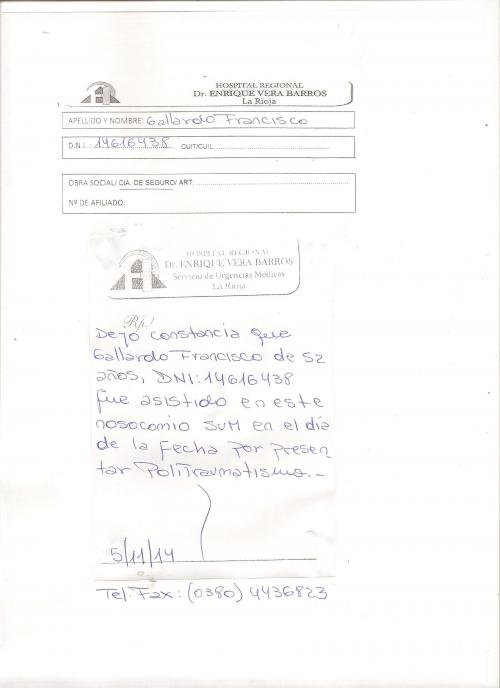 HOSPITAL REGIONAL
Dr. ENRIQUE VERA BARROS
La Rioja
APELLIDO Y NOMBRE: Gallardo Francisco
D.N.I. : 14616438 CUIT/CUIL:
OBRA SOCIAL/ CIA. DE SEGURO/ ART.
Nº DE AFILIADO:
HOSPITAL REGIONAL
Dr. ENRIQUE VERA BARROS
Servicio de Urgencias Médicas
La Rioja
Rp/
Dejo constancia que
Gallardo Francisco de 52
años, DNI: 14616438
fue asistido en este
nosocomio SUM en el día
de la fecha por presen-
tar Politraumatismo.-
5/11/14
Tel. Fax: (0380) 4436823